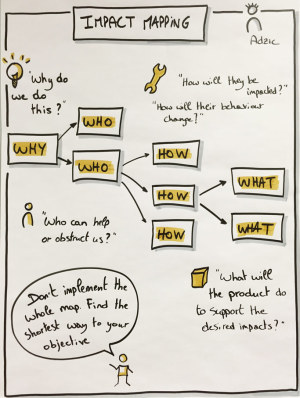 IMPACT MAPPING
Adzic
"Why do
we do
this?"
"How will they be
impacted?"
"How will their behaviour
change?"
WHO
WHY
WHO
HOW
HOW
HOW
WHAT
WHAT
"Who can help
or obstruct us?"
"What will
the product do
to support the
desired impacts?"
Don't implement the
whole map. Find the
shortest way to your
objective